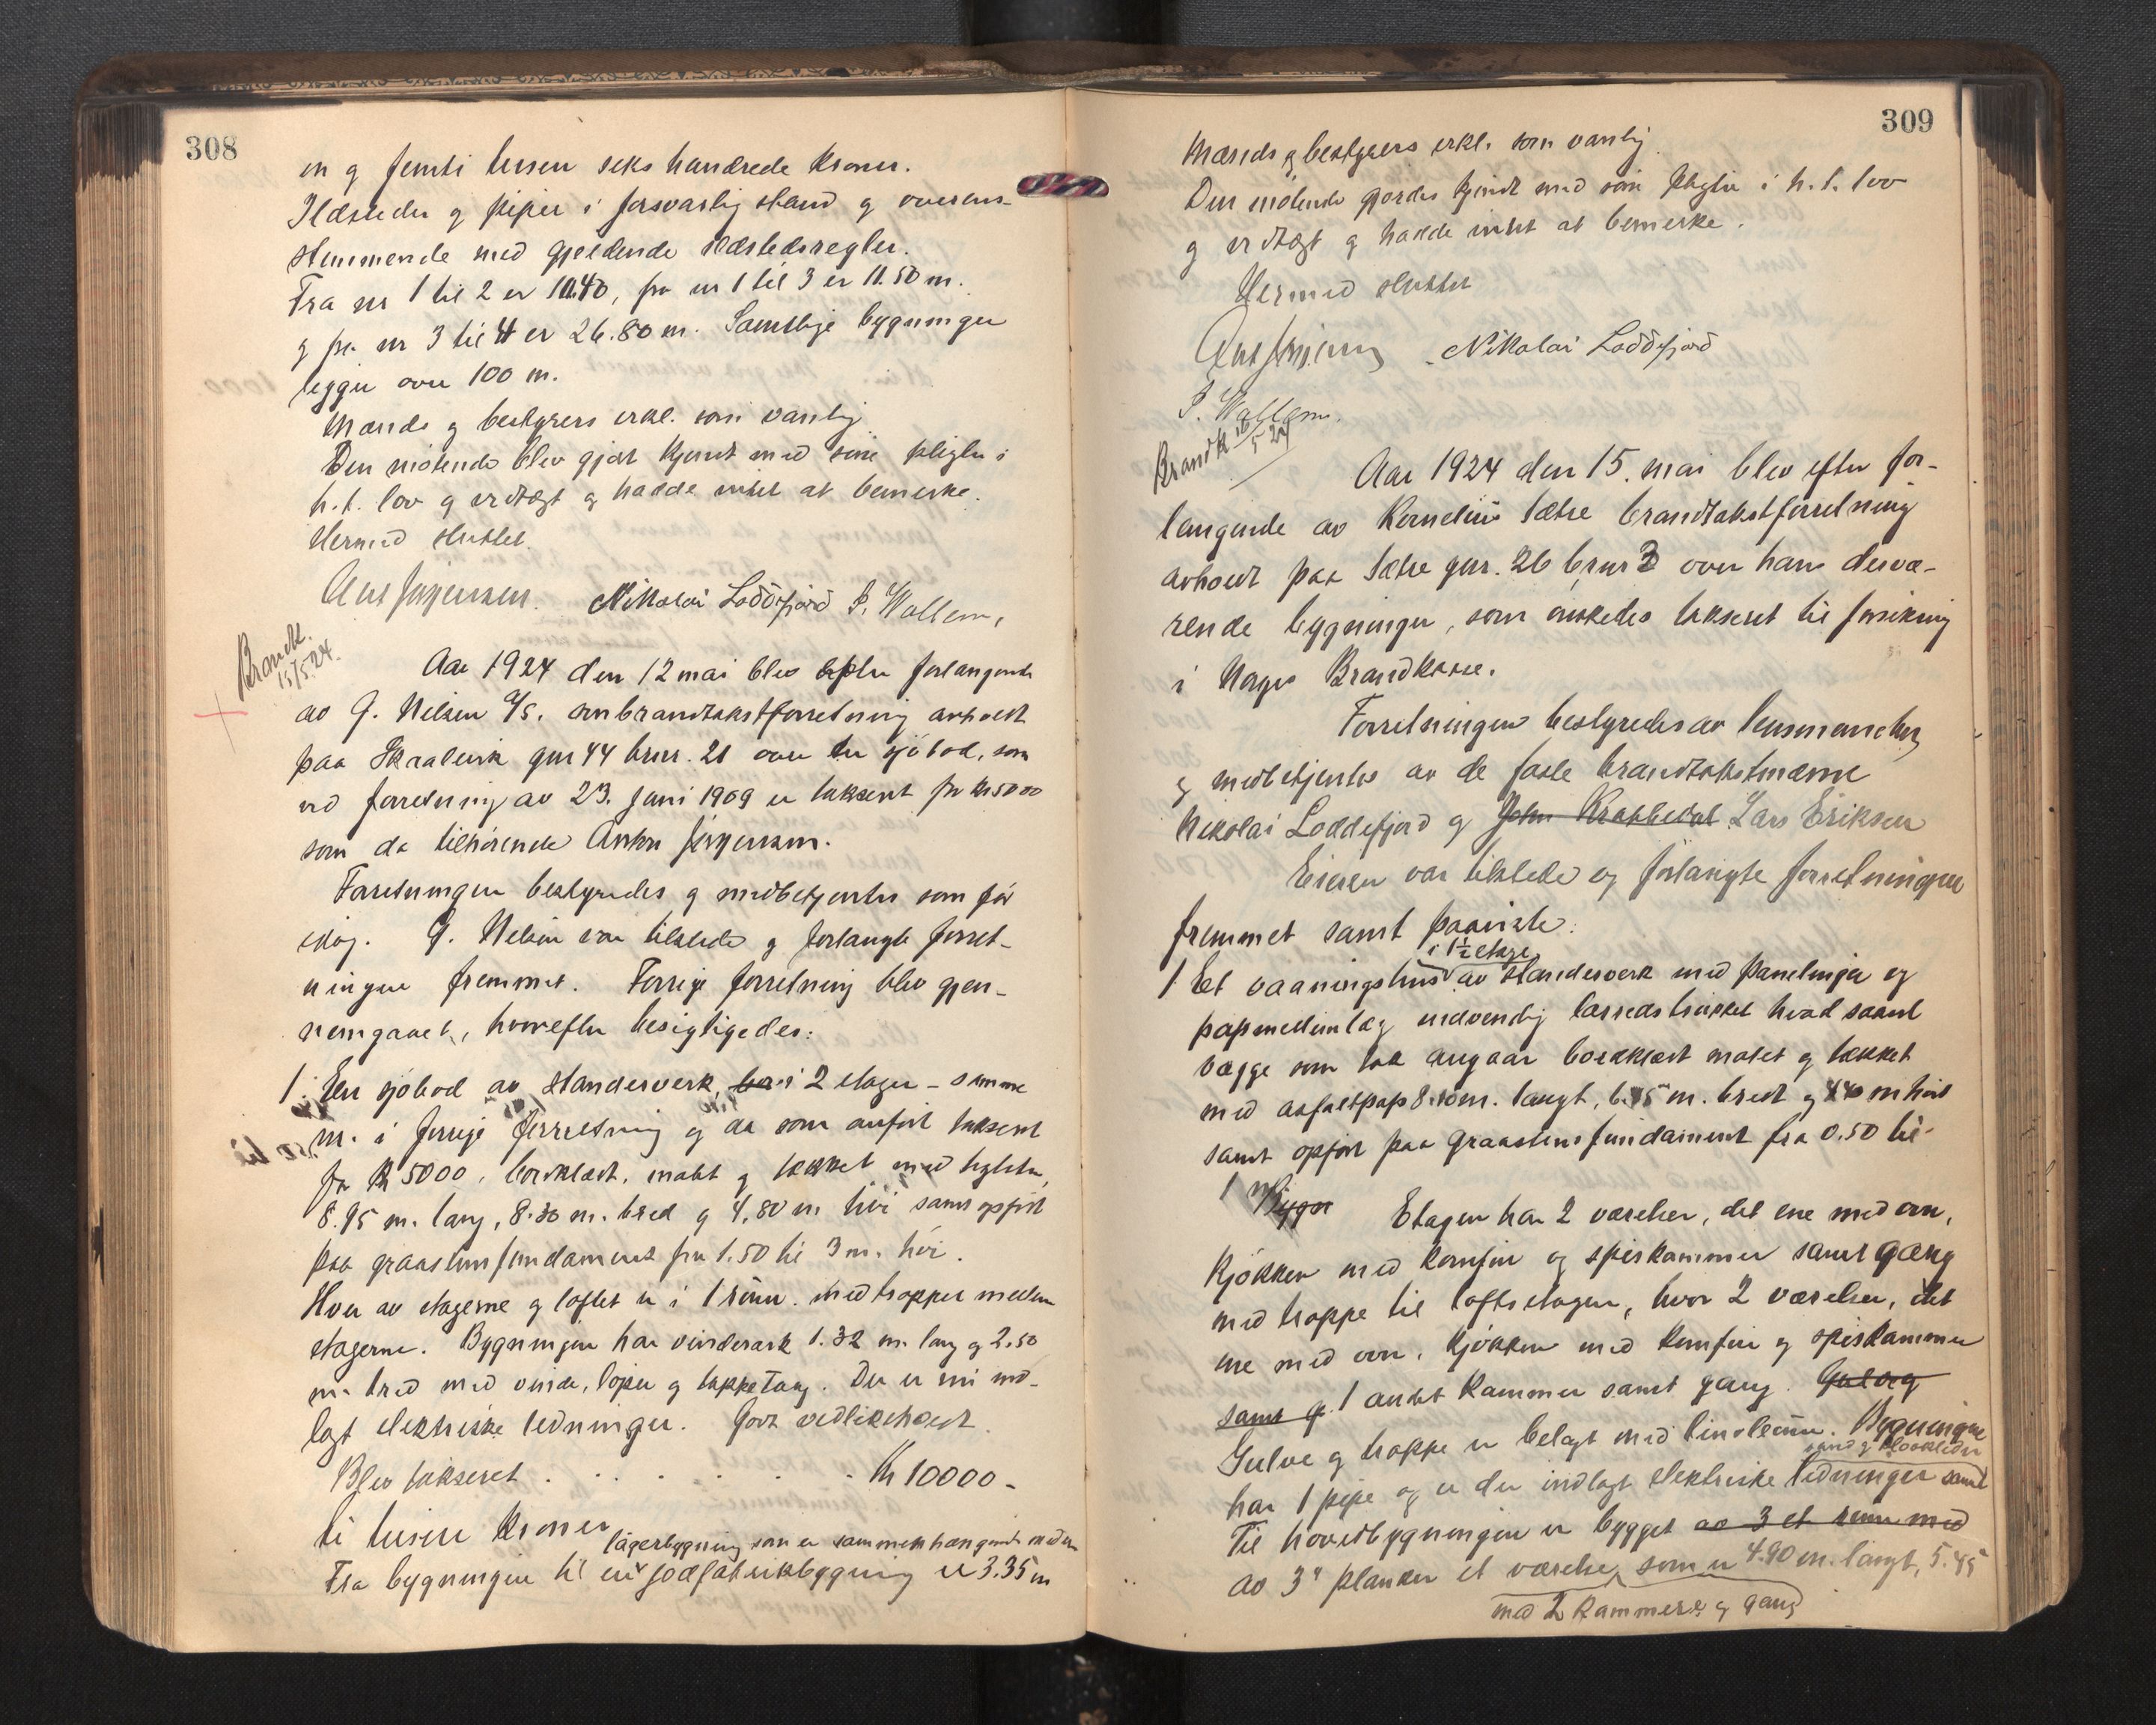 308
en og femti tusen seks hundrede kroner.
Ildsteder og piper i forsvarlig stand og overens-
stemmende med gjeldende ildstedsregler.
Fra nr 1 til 2 er 10.40, fra nr 1 til 3 er 11.50 m.
og fra nr 3 til 4 er 26.80 m. Samtlige bygninger
ligger over 100 m.
Mænds og bestyrers erkl. som vanlig
Den møtende blev gjort kjent med sine pligter i
h.t. lov og vedtægt og hadde intet at bemerke.
Hermed sluttet.
Ant Jørgensen. Nikolai Loddefjord P. Wallem,
Brandk.
15/5.24.
Aar 1924 den 12 mai blev efter forlangende
av G. Nilsen A/S. ombrandtakstforretning avholdt
paa Skralevik gnr 44 brnr. 21 over en sjøbod, som
ved forretning av 23. juni 1909 er taksert for kr 5000
som da tilhørende Anton Jørgensen.
Forretningen bestyredes og medbetjentes som før
idag. G. Nilsen var tilstede og forlangte forret-
ningen fremmet. Forrige forretning blev gjen-
nemgaaet, hvorefter besigtigedes:
1. En sjøbod av standerverk, i 2 etager - samme
nr. i forrige forretning og da som anført taksert
for kr 5000, bordklædt, malt og tækket med teglsten,
8.95 m. lang, 8.30 m. bred og 4,80 m høi samt opført
paa graastensfundament fra 1.50 til 3 m. høi.
Hver av etagerne og loftet er i 1 rum. med trapper mellem
etagerne. Bygningen har vindeark 1.32 m. lang og 2.50
m. bred med vinde, løper og takketaug. Der er nu ind-
lagt elektriske ledninger. Godt vedlikeholdt.
Blev taksert . . . . . . . Kr 10000 -
ti tusen kroner
lagerbygning som er sammenhængende med en
Fra bygningen til en sodafabrikbygning er 3.35 m
309
Mænds og bestyrers erkl. som vanlig
Den møtende gjordes kjendt med sine pligter i h.t. lov
og vedtægt og hadde intet at bemerke.
Hermed sluttet
Ant Jørgensen Nikolai Loddefjord
P. Wallem.
Brandk 16/5 24
Aar 1924 den 15. mai blev efter for-
langende av Kornelius Sætre brandtakstforretning
avholdt paa Sætre gnr. 26 brnr 3 over hans dervæ-
rende bygninger, som ønskedes taksert til forsikring
i Norges Brandkasse.
Forretningen bestyredes av lensmanden
og medbetjentes av de faste brandtakstmænd
Nikolai Loddefjord og John Krabbedal Lars Eriksen
Eieren var tilstede og forlangte forretningen
fremmet samt paaviste:
i 1½ etage
1 Et vaaningshus av standerverk med panelinger og
papmedimlæg indvendig lærredstrukket hvad saavel
vægge som tak angaar bordklædt malet og tækket
med asfaltpap 8.10 m. langt, 6.75 m. bredt og 4.40 m høit
samt opført paa graastensfundament fra 0.50 til
1 m Etagen har 2 værelser, det ene med ovn,
kjøkken med komfur og spiskammer samt gang
med trappe til loftsetagen, hvor 2 værelser, det
ene med ovn, kjøkken med komfur og spiskammer
samt g. 1 andet kammer samt gang. Gulvog
Gulve og trappe er belagt med linoleum. Bygningen
vand og kloakledn
har 1 pipe og er der indlagt elektriske ledninger samt
Til hovedbygningen er bygget av 3 et rum med
av 3" planker et værelse, som er 4.90 m. langt, 5.45
med 2 kammerse og gang